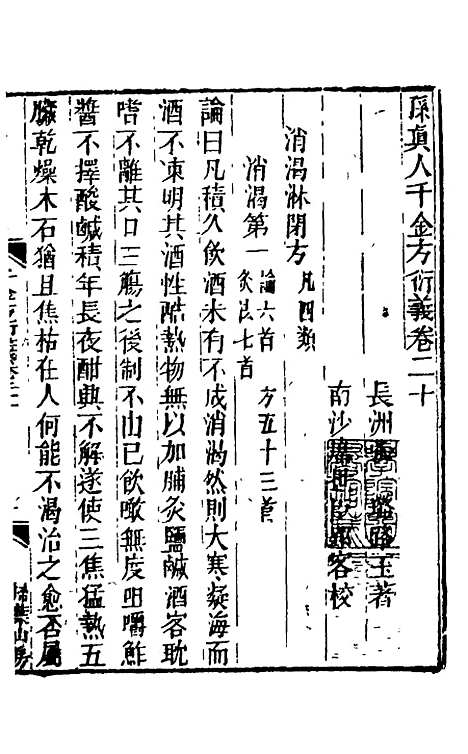 孫真人千金方衍義卷二十
長洲 璐玉著
南沙 客校
消渴淋閉方凡四類
消渴第一論六首 方五十三首 灸法七首
論曰凡積久飲酒未有不成消渴然則大寒凝海而
酒不凍明其酒性酷熱物無以加脯炙鹽鹹酒客耽
嗜不離其口三觴之後制不由已飲噉無度咀嚼鮓
醬不擇酸鹹積年長夜酣興不解遂使三焦猛熱五
臟乾燥木石猶且焦枯在人何能不渴治之愈否屬
掃葉山房